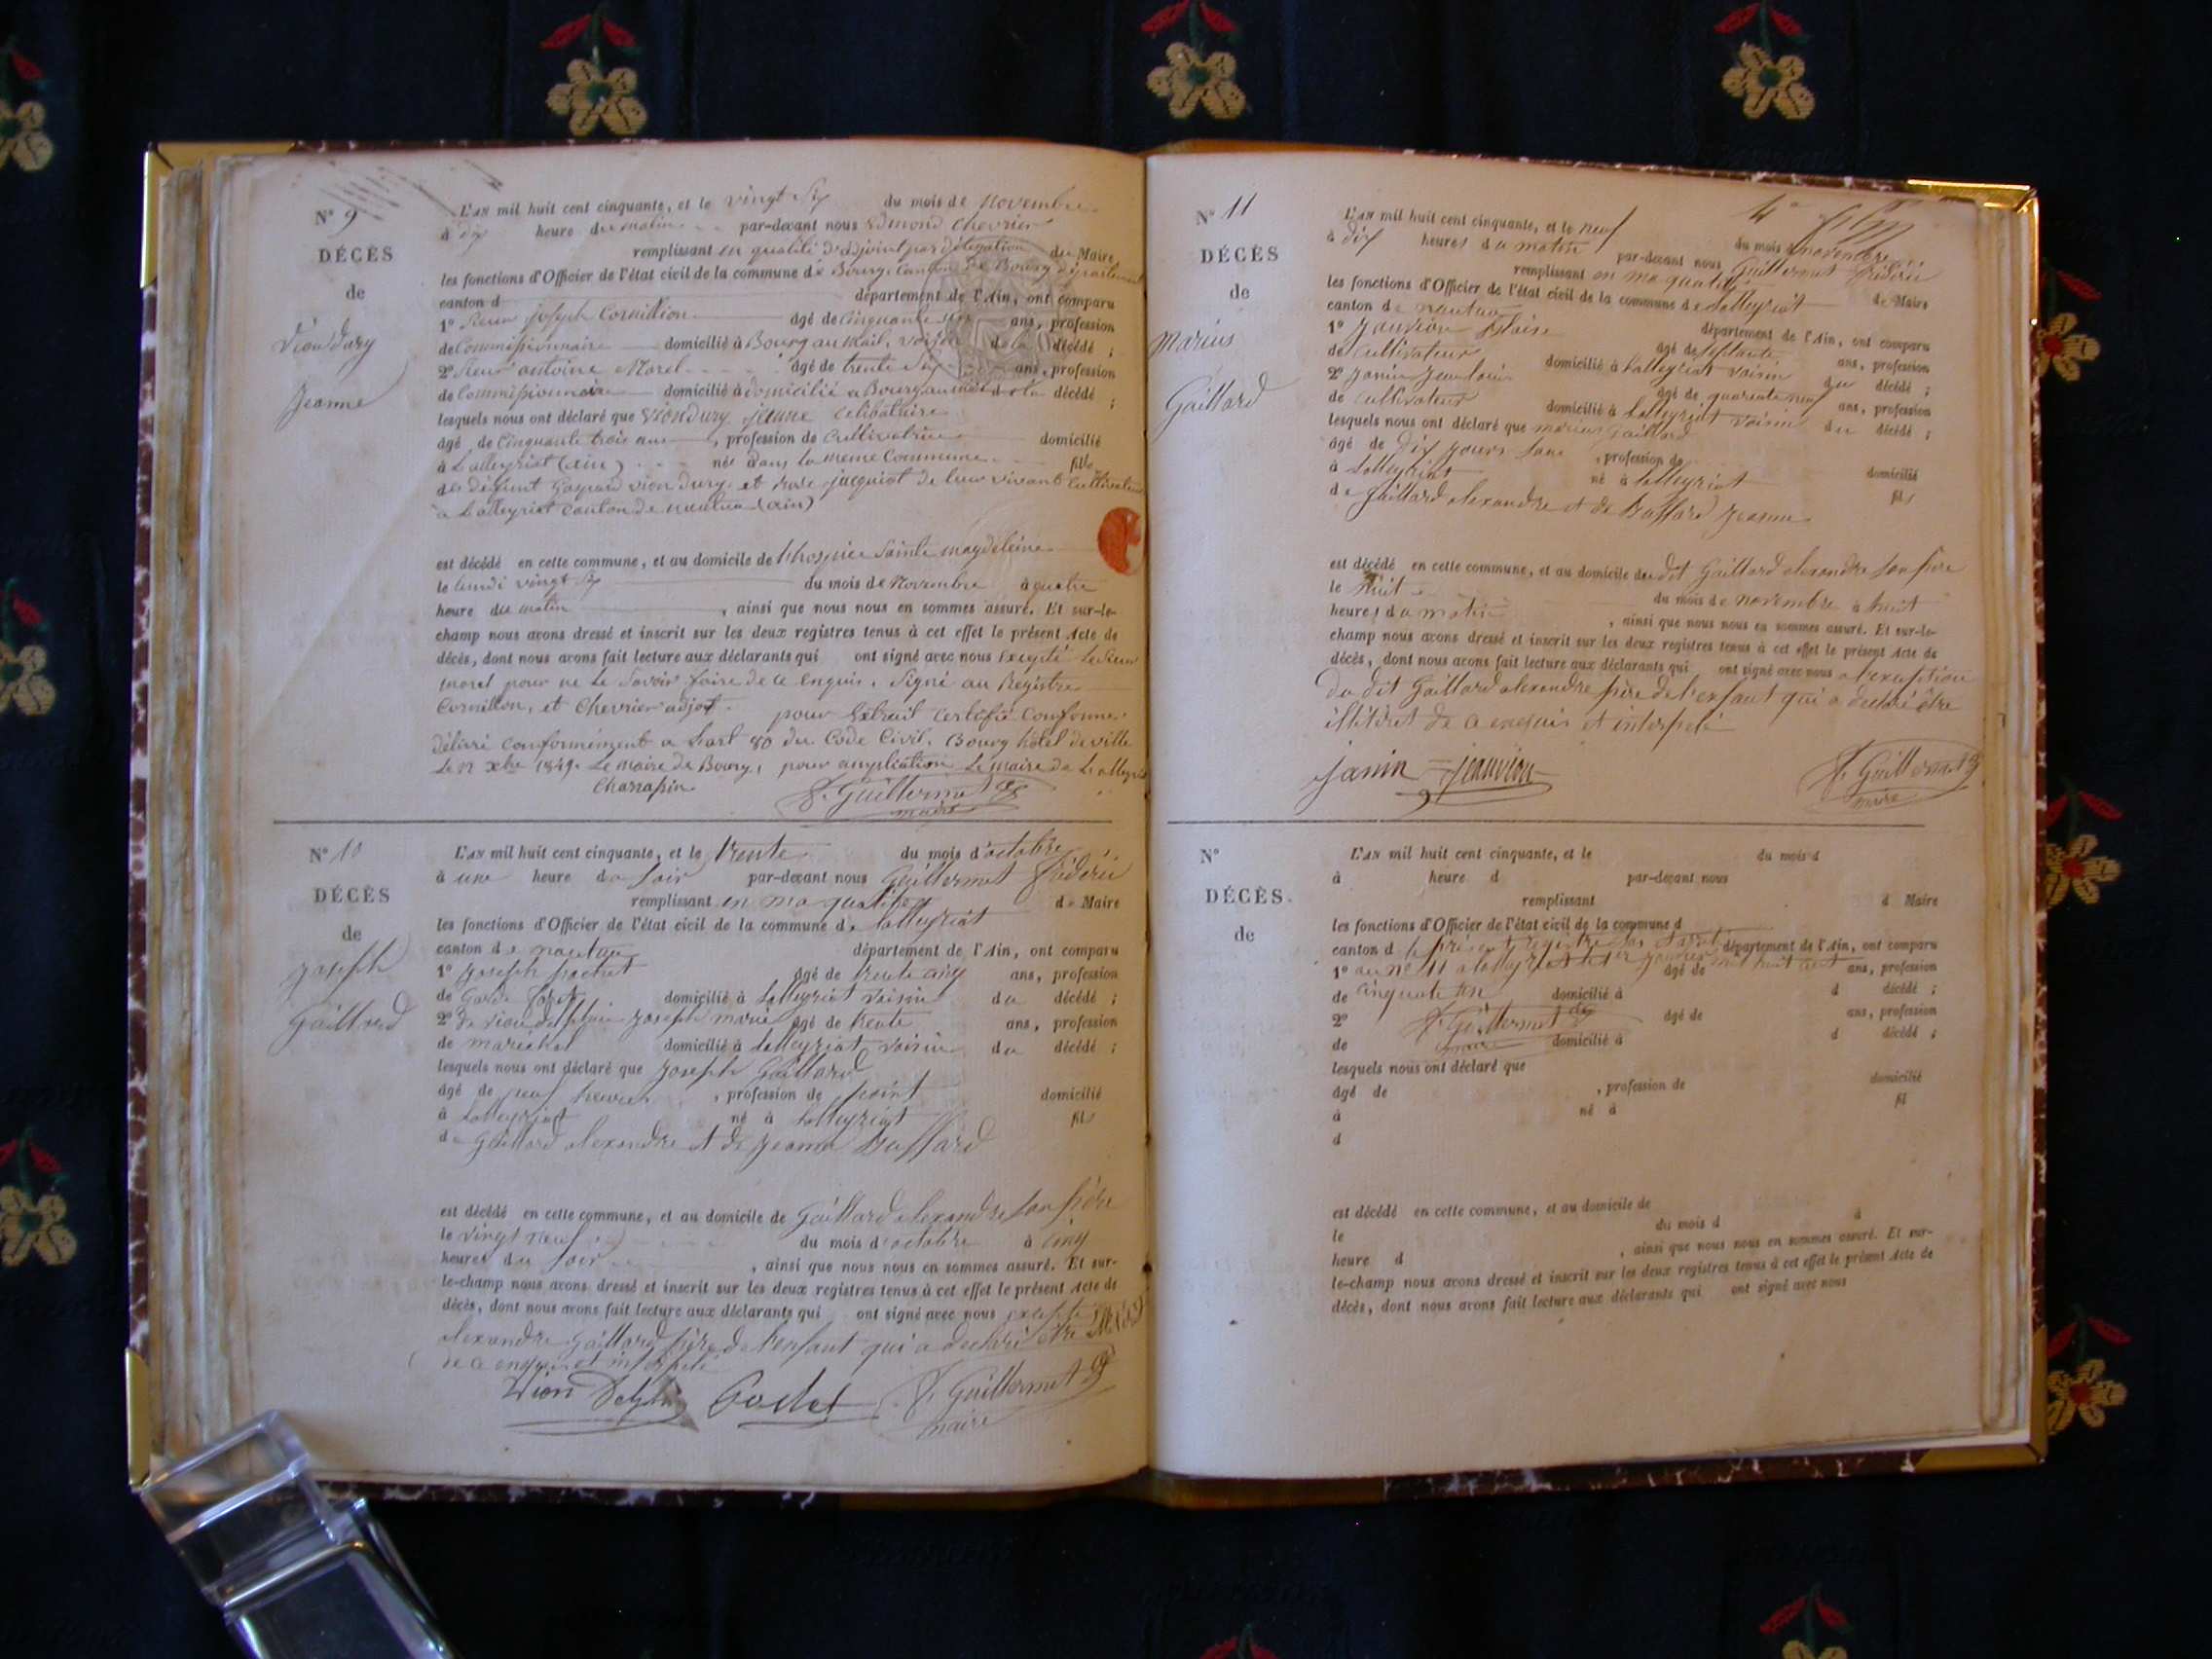 N° 9
DÉCÈS
de
Viondury
Jeanne
L'AN mil huit cent cinquante, et le vingt six du mois de Novembre
à dix heure du matin par-devant nous Edmond Chevrier
remplissant en qualité d'adjoint par délégation du Maire
les fonctions d'Officier de l'état civil de la commune de Bourg, Canton de Bourg département
canton d département de l'Ain, ont comparu
1° Sieur joseph Cornillion âgé de Cinquante ans, profession
de Commissionnaire domicilié à Bourg au mail, voisin de la décédé ;
2° Sieur antoine Morel âgé de trente six ans, profession
de Commissionnaire domicilié à domicilié a Bourg au mail de la décédé ;
lesquels nous ont déclaré que Viondury jeanne Celibataire
âgé de Cinquante trois ans, profession de Cultivatrice domicilié
à Lalleyriat (ain) née dans la meme Commune fille
des défunt Gaspard vion dury et rose jacquiot de leur vivant Cultivateurs
a Lalleyriat Canton de nantua (ain)
est décédé en cette commune, et au domicile de l'hospice Sainte magdeleine
le lundi vingt six du mois de Novembre à quatre
heure du matin, ainsi que nous nous en sommes assuré. Et sur-le-
champ nous avons dressé et inscrit sur les deux registres tenus à cet effet le présent Acte de
décès, dont nous avons fait lecture aux déclarants qui ont signé avec nous Excepté le Sieur
morel pour ne le Savoir faire de ce enquis. Signé au Registre
Cornillon, et Chevrier adjot. pour Extrait certifié Conforme
délivré Conformément a l'art 80 du Code Civil. Bourg hôtel de ville
Le 12 xbre 1849. Le maire de Bourg, pour ampliation Le maire de Lalleyriat
Chanapin F. Guillermet
maire
N° 10
DÉCÈS
de
joseph
Gaillard
L'AN mil huit cent cinquante, et le trente du mois d'octobre
à une heure du soir par-devant nous Guillermet frédéric
remplissant en ma qualité de Maire
les fonctions d'Officier de l'état civil de la commune de lalleyriat
canton de nantua département de l'Ain, ont comparu
1° joseph pochet âgé de trente cinq ans, profession
de Garde foret domicilié à Lalleyriat voisin du décédé ;
2° vion delphin joseph marie âgé de trente ans, profession
de marechal domicilié à lalleyriat voisin du décédé ;
lesquels nous ont déclaré que joseph Gaillard
âgé de neuf heures, profession de point domicilié
à Lalleyriat né à Lalleyriat fils
de Gaillard alexandre et de jeanne Buffard
est décédé en cette commune, et au domicile de Gaillard alexandre son père
le vingt neuf du mois d'octobre à cinq
heures du soir, ainsi que nous nous en sommes assuré. Et sur-
le-champ nous avons dressé et inscrit sur les deux registres tenus à cet effet le présent Acte de
décès, dont nous avons fait lecture aux déclarants qui ont signé avec nous excepté
alexandre Gaillard père de l'enfant qui a declaré être illitéré
de ce enquis et interpelé
Vion Delphin Pochet F. Guillermet
maire
N° 11
DÉCÈS
de
Marius
Gaillard
L'AN mil huit cent cinquante, et le neuf du mois de novembre
à dix heures du matin par-devant nous Guillermet frédéric
remplissant en ma qualité de Maire
les fonctions d'Officier de l'état civil de la commune de Lalleyriat
canton de nantua département de l'Ain, ont comparu
1° jeanvion Blaise âgé de septante ans, profession
de cultivateur domicilié à Lalleyriat voisin du décédé ;
2° janin jean louis âgé de quarante neuf ans, profession
de cultivateur domicilié à Lalleyriat voisin du décédé ;
lesquels nous ont déclaré que marius Gaillard
âgé de dix jours sans, profession de domicilié
à Lalleyriat né à lalleyriat fils
de Gaillard alexandre et de Buffard jeanne
est décédé en cette commune, et au domicile du dit Gaillard alexandre son père
le huit du mois de novembre à huit
heures du matin, ainsi que nous nous en sommes assuré. Et sur-le-
champ nous avons dressé et inscrit sur les deux registres tenus à cet effet le présent Acte de
décès, dont nous avons fait lecture aux déclarants qui ont signé avec nous a l'exception
du dit Gaillard alexandre père de l'enfant qui a declaré être
illitéret de ce enquis et interpelé
janin jeanvion F. Guillermet
maire
N°
DÉCÈS
de
L'AN mil huit cent cinquante, et le du mois d
à heure d par-devant nous
remplissant d Maire
les fonctions d'Officier de l'état civil de la commune d
canton d le présent registre département de l'Ain, ont comparu
1° au n° 11 a lalleyriat le 1er janvier mil huit cent âgé de ans, profession
de cinquante un domicilié à d décédé ;
2° F. Guillermet âgé de ans, profession
de maire domicilié à d décédé ;
lesquels nous ont déclaré que
âgé de , profession de domicilié
à né à fil
d
est décédé en cette commune, et au domicile de
le du mois d à
heure d , ainsi que nous nous en sommes assuré. Et sur-
le-champ nous avons dressé et inscrit sur les deux registres tenus à cet effet le présent Acte de
décès, dont nous avons fait lecture aux déclarants qui ont signé avec nous